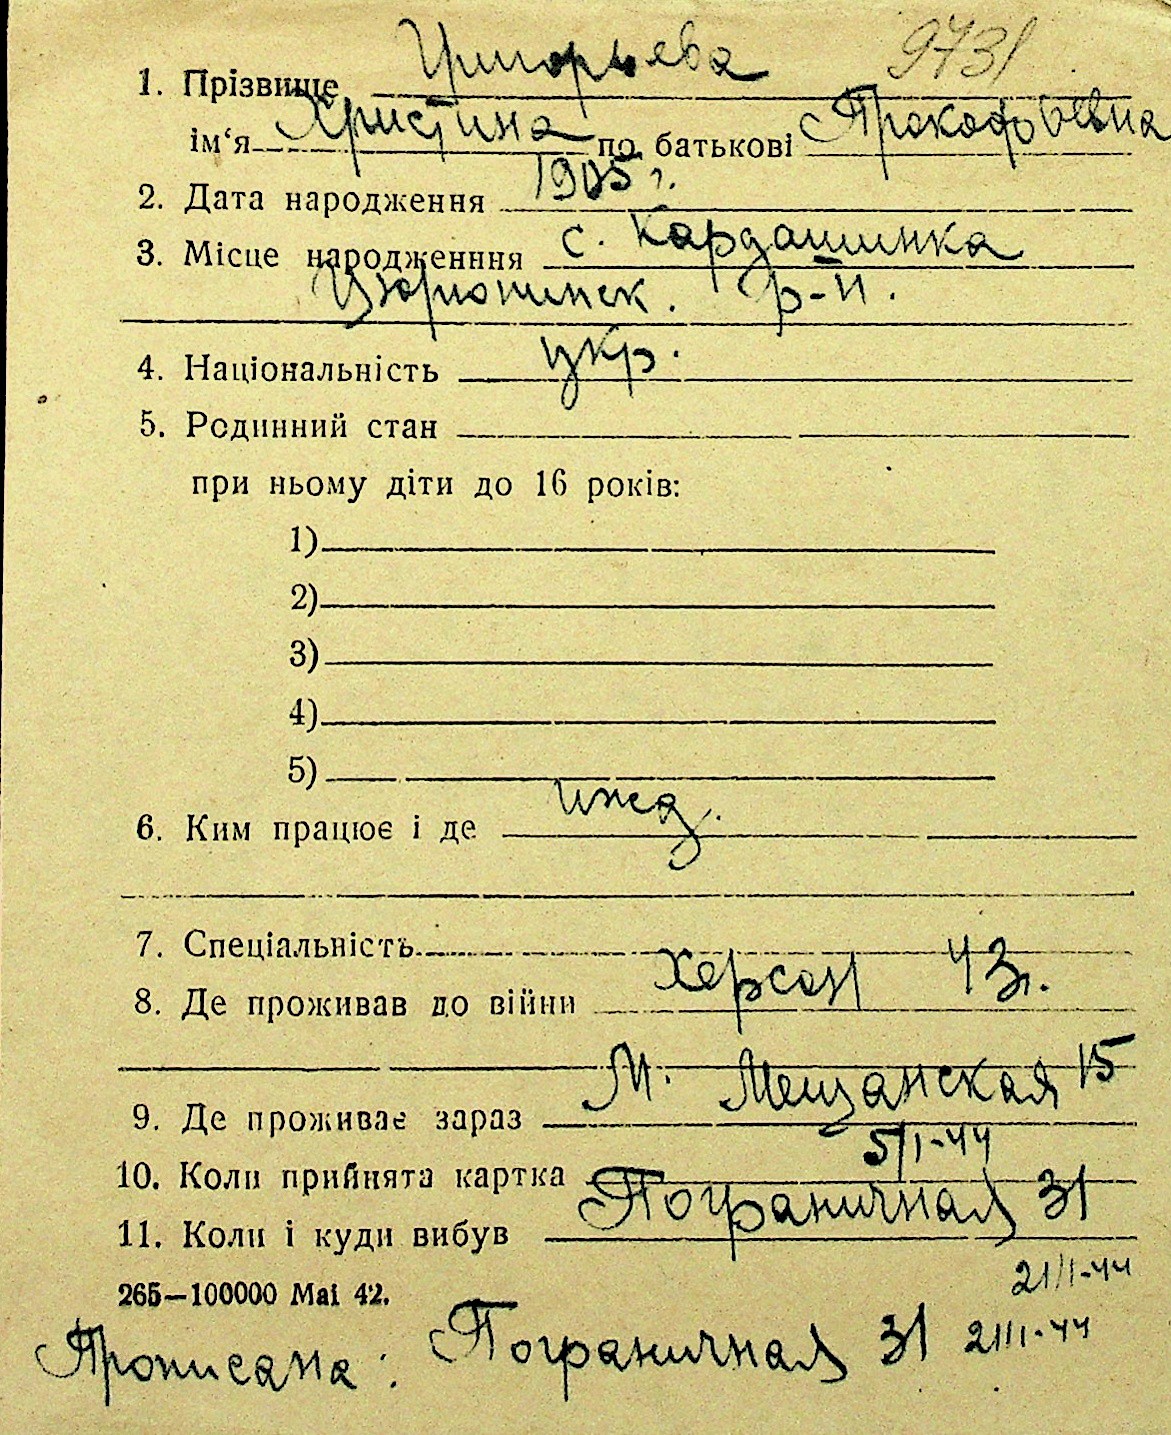 9731
1. Прізвище Григорьева
ім‘я Христина по батькові Прокофьевна
2. Дата народження 1905 г.
3. Місце народженння с. Кардашинка
Цюрюпинск. р-н.
4. Національність укр.
5. Родинний стан
при ньому діти до 16 років:
1)
2)
3)
4)
5)
6. Ким працює і де ижд.
7. Спеціальність
8. Де проживав до війни Херсон
9. Де проживає зараз М. Мещанская 15
10. Коли прийнята картка 5/I-44
11. Коли і куди вибув Пограничная 31
21/I-44
265—100000 Mai 42.
Прописана: Пограничная 31 21/I-44